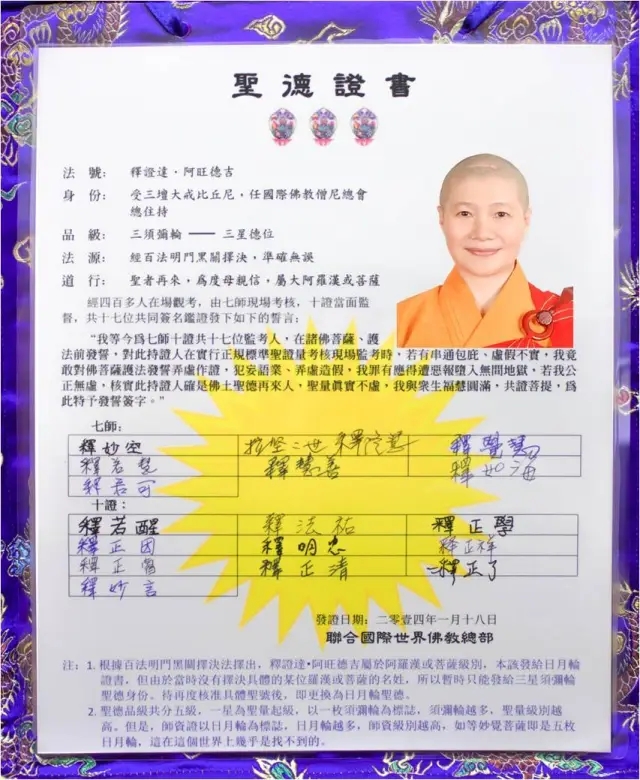 聖德證書
法　號：　釋證達．阿旺德吉
身　份：　受三壇大戒比丘尼，任國際佛教僧尼總會
總住持
品　級：　三須彌輪 —— 三星德位
法　源：　經百法明門黑關擇決，準確無誤
道　行：　聖者再來，為度母親信，屬大阿羅漢或菩薩
經四百多人在場觀考，由七師現場考核，十證當面監
督，共十七位共同簽名鑑證發下如下的誓言：
“我等今為七師十證共十七位監考人，在諸佛菩薩、護
法前發誓，對此持證人在實行正規標準聖證量考核現場監考時，若有串通包庇、虛假不實，我竟
敢對佛菩薩護法發誓弄虛作證，犯妄語業、弄虛造假，我罪有應得遭惡報墮入無間地獄，若我公
正無虛，核實此持證人確是佛土聖德再來人，聖量真實不虛，我與眾生福慧圓滿，共證菩提，為
此特予發誓簽字。”
七師：
釋妙空　拉堅二世　釋覺慧
釋若慧　釋慧善　釋如海
釋若可
十證：
釋若醒　釋法祐　釋正學
釋正因　釋明忠　释正祥
釋正賢　釋正清　釋正了
釋妙言
發證日期：二零壹四年一月十八日
聯合國際世界佛教總部
注：1. 根據百法明門黑關擇決法擇出，釋證達•阿旺德吉屬於阿羅漢或菩薩級別，本該發給日月輪
證書，但由於當時沒有擇決具體的某位羅漢或菩薩的名姓，所以暫時只能發給三星須彌輪
聖德身份。待再度核准具體聖號後，即更換為日月輪聖德。
2. 聖德品級共分五級，一星為聖量起級，以一枚須彌輪為標誌，須彌輪越多，聖量級別越
高。但是，師資證以日月輪為標誌，日月輪越多，師資級別越高，如等妙覺菩薩即是五枚
日月輪，這在這個世界上幾乎是找不到的。